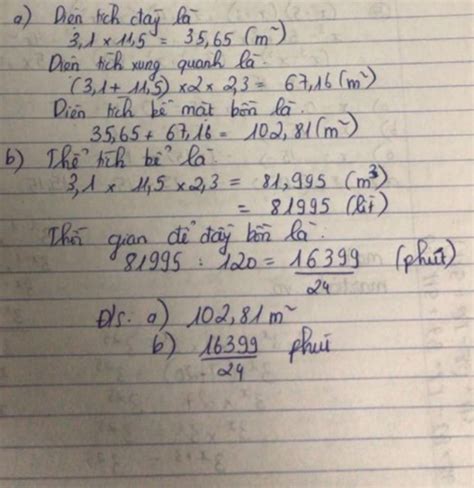 a) Diện tích đáy là
3,1 x 11,5 = 35,65 (m²)
Diện tích xung quanh là
(3,1 + 11,5) x 2 x 2,3 = 67,16 (m²)
Diện tích bề mặt bồn là
35,65 + 67,16 = 102,81 (m²)
b) Thể tích bể là
3,1 x 11,5 x 2,3 = 81,995 (m³)
= 81995 (lít)
Thời gian để đầy bồn là
81995 : 120 = 16399/24 (phút)
Đ/s: a) 102,81 m²
b) 16399/24 phút